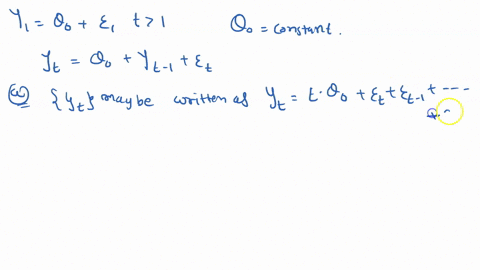 Y₁ = θ₀ + ε₁ t > 1 θ₀ = constant.
Y_t = θ₀ + Y_{t-1} + ε_t
(a) {Y_t} may be written as Y_t = t·θ₀ + ε_t + ε_{t-1} + ----